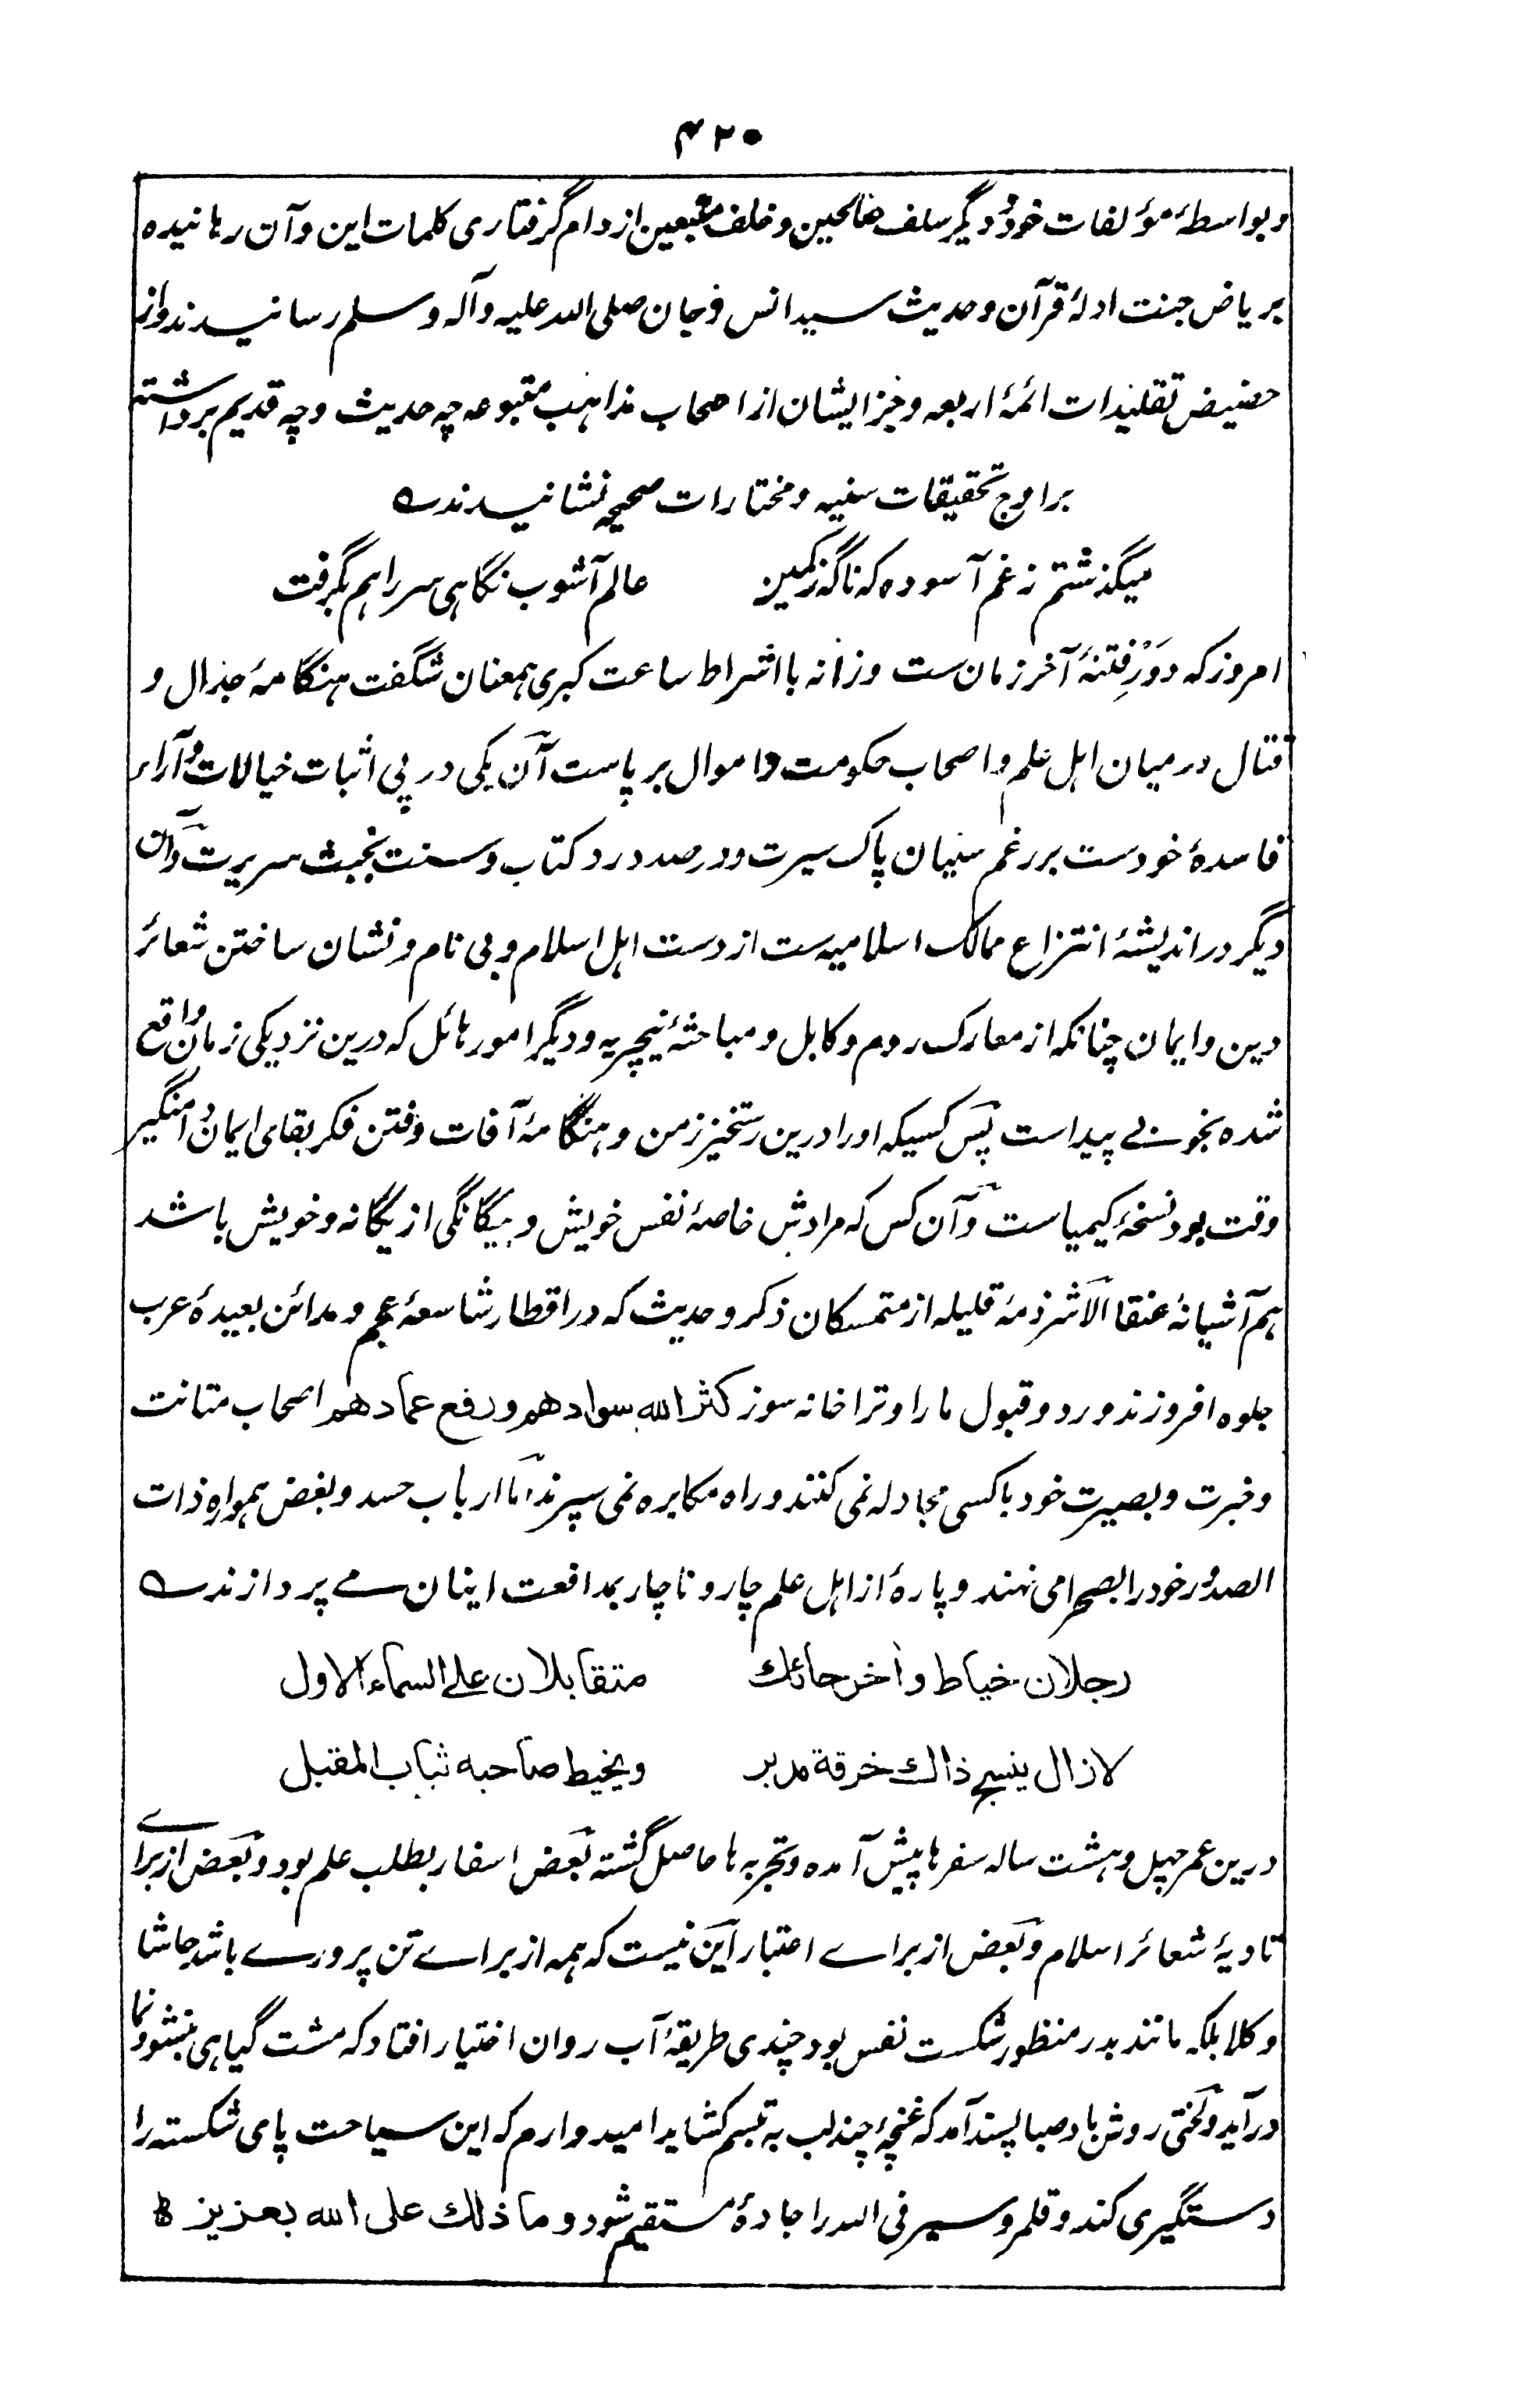 ۴۲۰
و بواسطۀ مؤلفات خود و دیگر سلف صالحین و خلف متبعین از دام گرفتاری کلمات این و آن رهانیده
بریاض جنت ادلۀ قرآن و حدیث سید انس و جان صلی الله علیه و آله و سلم رسانیدند و از
حضیض تقلیدات ائمۀ اربعه و جز ایشان از اصحاب مذاهب متبوعه چه حدیث و چه قدیم برداشته
بر اوج تحقیقات سنیه و مختارات صحیحه نشانیدند
میگذشتم ز غم آسوده که ناگه ز کمین عالم آشوب نگاهی سر راهم بگرفت
امروز که دَوْرِ فتنۀ آخر زمان ست و زمانه با اشراط ساعت کبری همعنان شگفت هنگامۀ جدال و
قتال درمیان اهل علم و اصحاب حکومت و اموال برپاست آن یکی در پی اثبات خیالات و آراء
فاسدۀ خودست بر رغم سنیان پاک سیرت و در صدد رد کتاب و سنت بخبث سریرت و آن
دیگر در اندیشۀ انتزاع ممالک اسلامیه ست از دست اهل اسلام و بی نام و نشان ساختن شعائر
دین و ایمان چنانکه از معارک روم و کابل و مباحثۀ نیچریه و دیگر امور هائل که درین نزدیکی زمان واقع
شده بخوبے پیداست پس کسیکه او را درین رستخیز زمن و هنگامۀ آفات و فتن فکر بقای ایمان دامنگیر
وقت بود نسخۀ کیمیاست و آن کس که مرادش خاصۀ نفس خویش و بیگانگی از یگانه و خویش باشد
هم آشیانۀ عنقا الا شرذمۀ قلیله از متمسکان ذکر و حدیث که در اقطار شاسعۀ عجم و مدائن بعیدۀ عرب
جلوه افروزند و رد و قبول ما را و ترا خانه سوز کثر الله سوادهم و رفع عمادهم اصحاب متانت
و خبرت و بصیرت خود با کسی مجادله نمی کنند و راه مکابره نمی سپرند اما ارباب حسد و بغض همواره ذات
الصدور خود را بصحرا می نهند و پارۀ از اهل علم چار و ناچار بمدافعت اینان مے پردازند
رجلان خیاط و آخر حائك متقابلان علی السماء الاول
لازال ینسج ذاك خرقة مدبر و یخیط صاحبه ثیاب المقبل
درین عمر چهل و هشت ساله سفرها پیش آمده و تجربه ها حاصل گشته بعض اسفار بطلب علم بود و بعض از برائے
تادیۀ شعائر اسلام و بعض از براے اعتبار این نیست که همه از براے تن پرورے باشد حاشا
و کلا بلکه مانند بدر منظور شکست نفس بود چندی طریقۀ آب روان اختیار افتاد که مشت گیاهی بنشو و نما
در آید و لختی روش باد صبا پسند آمد که غنچۀ چند لب به تبسم کشاید امیدوارم که این سیاحت پای شکسته را
دستگیری کند و قلمرو سیر فی الله را جادۀ مستقیم شود و ما ذلك علی الله بعزیز